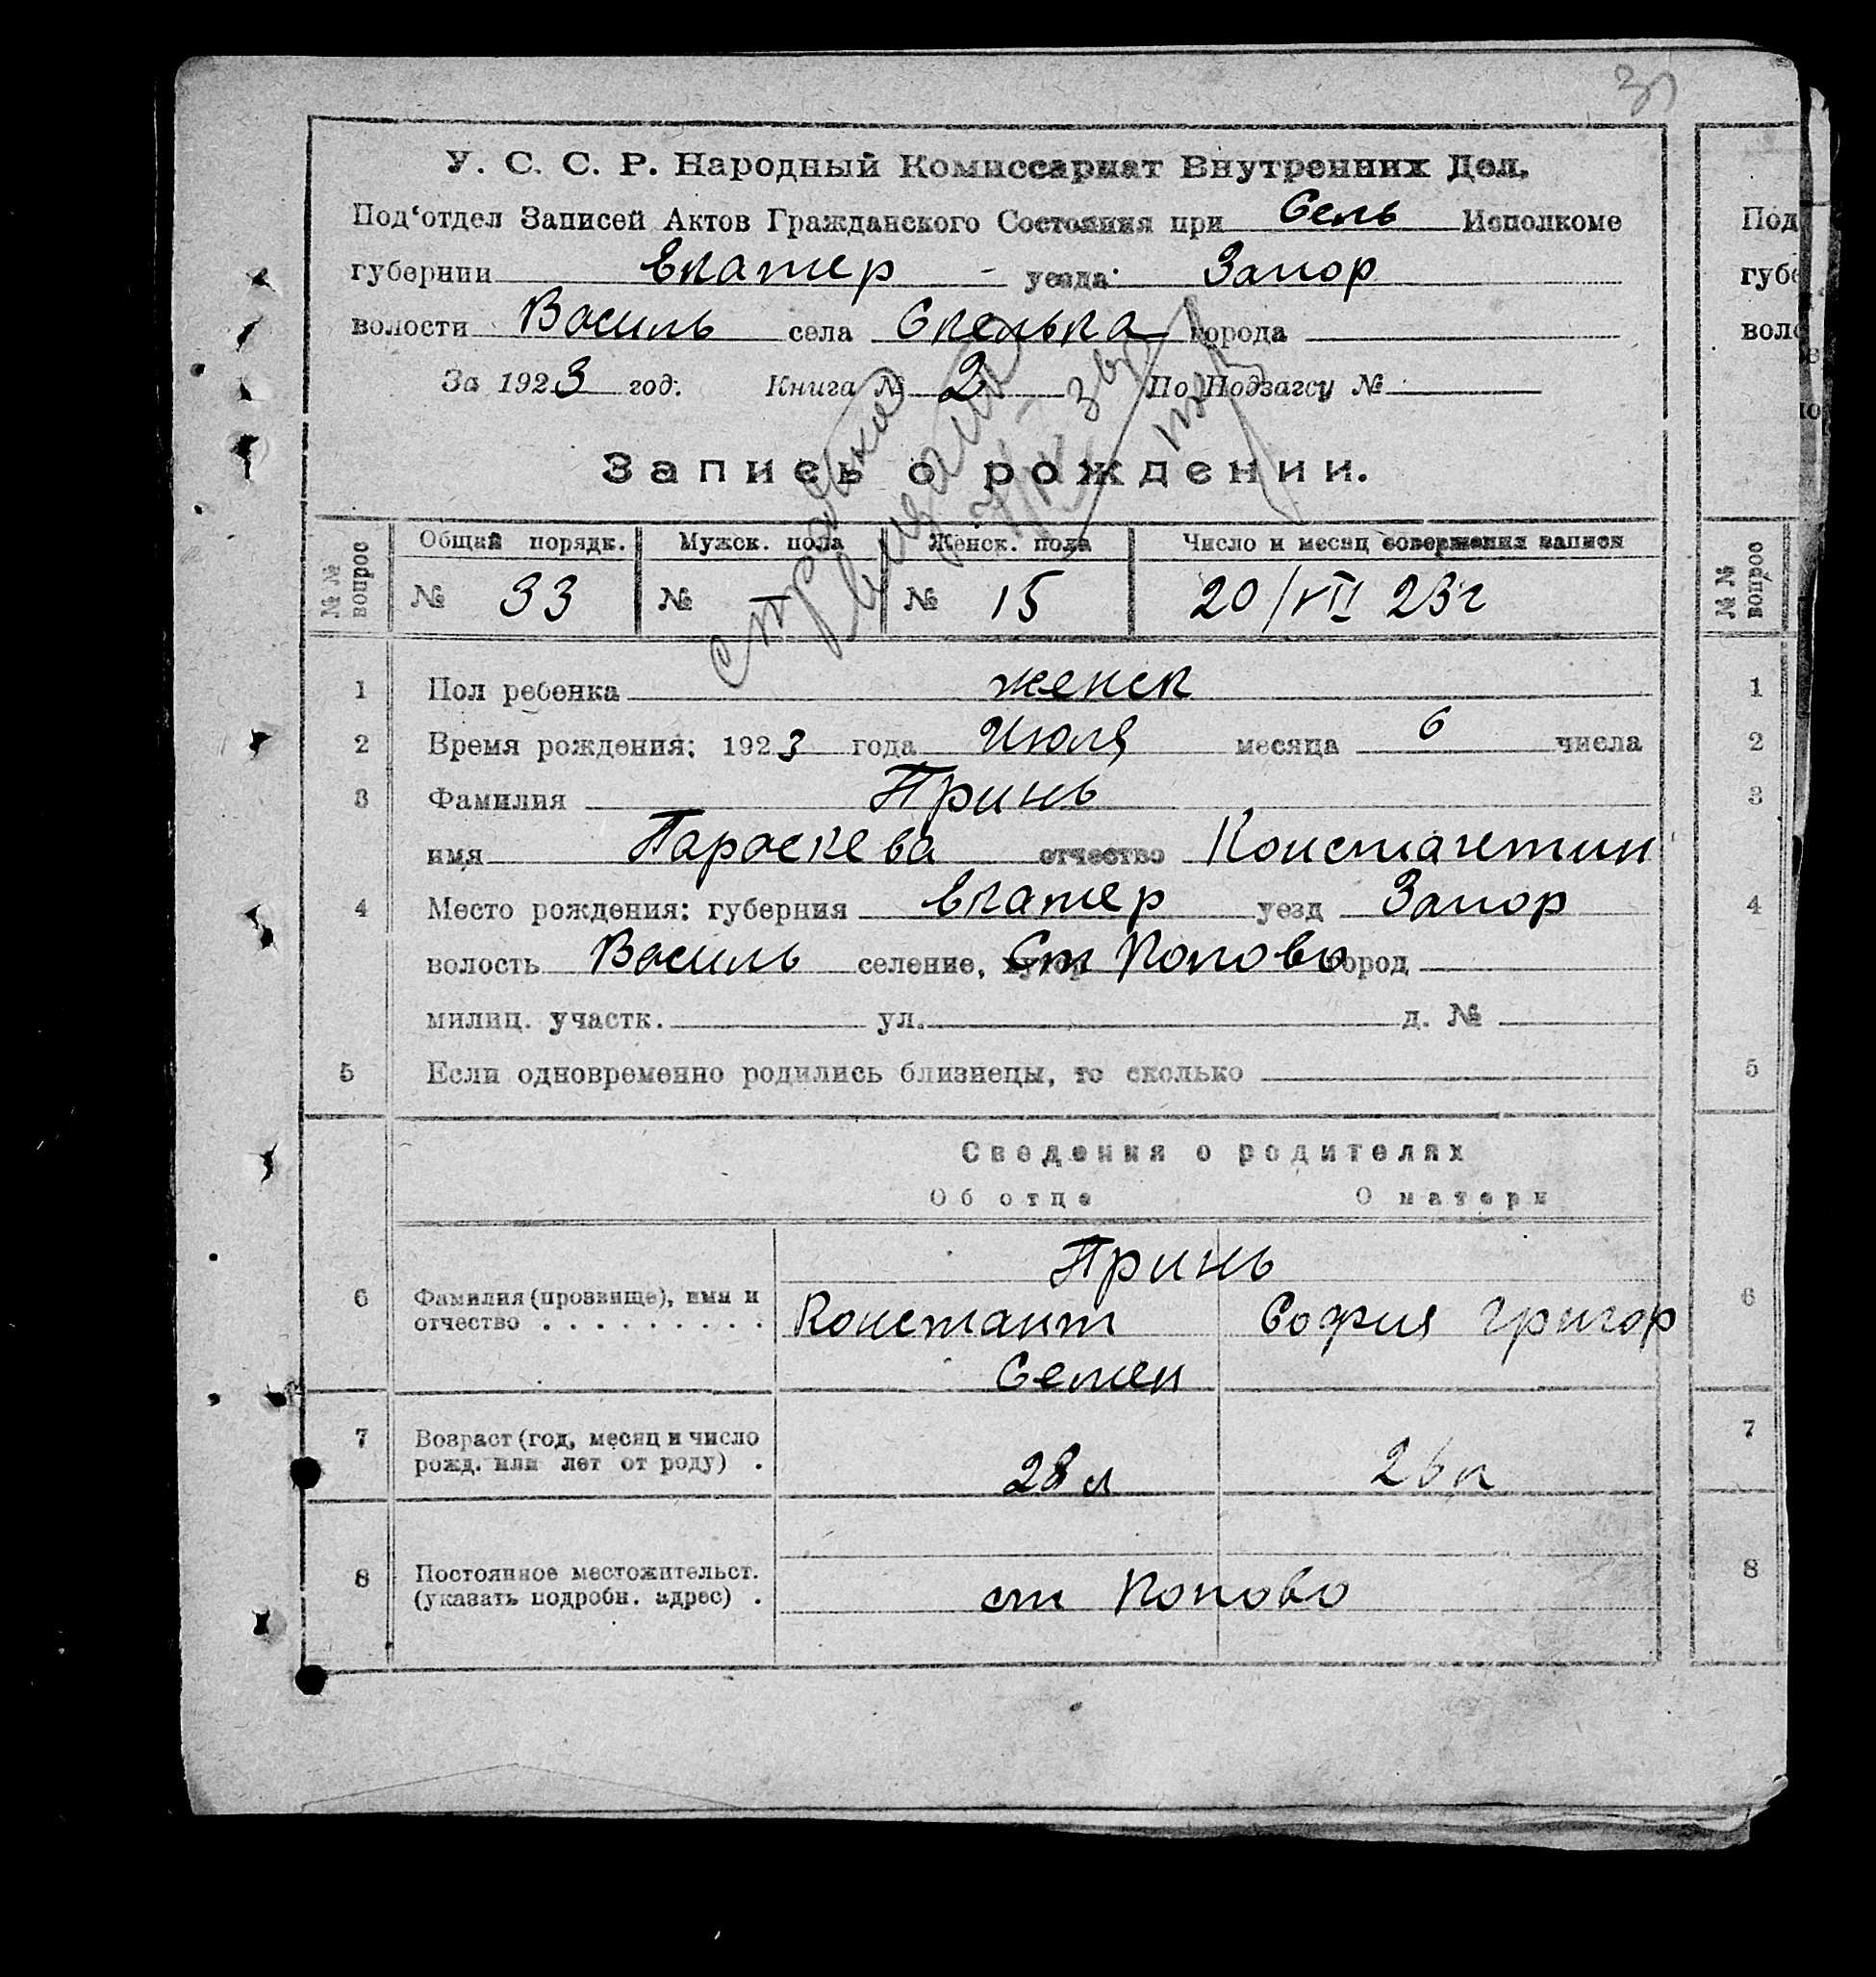 У. С. С. Р. Народный Комиссариат Внутренних Дел.
Под‘отдел Записей Актов Гражданского Состояния при Сель Исполкоме
губернии Екатер - уезда: Запор
волости Василь села Скелька города
За 1923 год. Книга № 2 По Подзагсу №
Запись о рождении.
№ № вопрос
Общий порядк. Мужск. пола Женск. пола Число и месяц совершения записи
№ 33 № — № 15 20/VII 23г
1 Пол ребенка женск
2 Время рождения: 1923 года Июля месяца 6 числа
3 Фамилия Принь
имя Параскева отчество Константин
4 Место рождения: губерния Екатер уезд Запор
волость Василь селение, хутор Ст Попово город
милиц. участк. ул. д. №
5 Если одновременно родились близнецы, то сколько
Сведения о родителях
Об отце О матери
Принь
6 Фамилия (прозвище), имя и
отчество . . . . . . . . . Констант София Григор
Семен
7 Возраст (год, месяц и число
рожд. или лет от роду) . 28 л 26 л
8 Постоянное местожительст.
(указать подробн. адрес) . ст Попово
Под
губе
воло
№ № вопрос
1
2
3
4
5
6
7
8